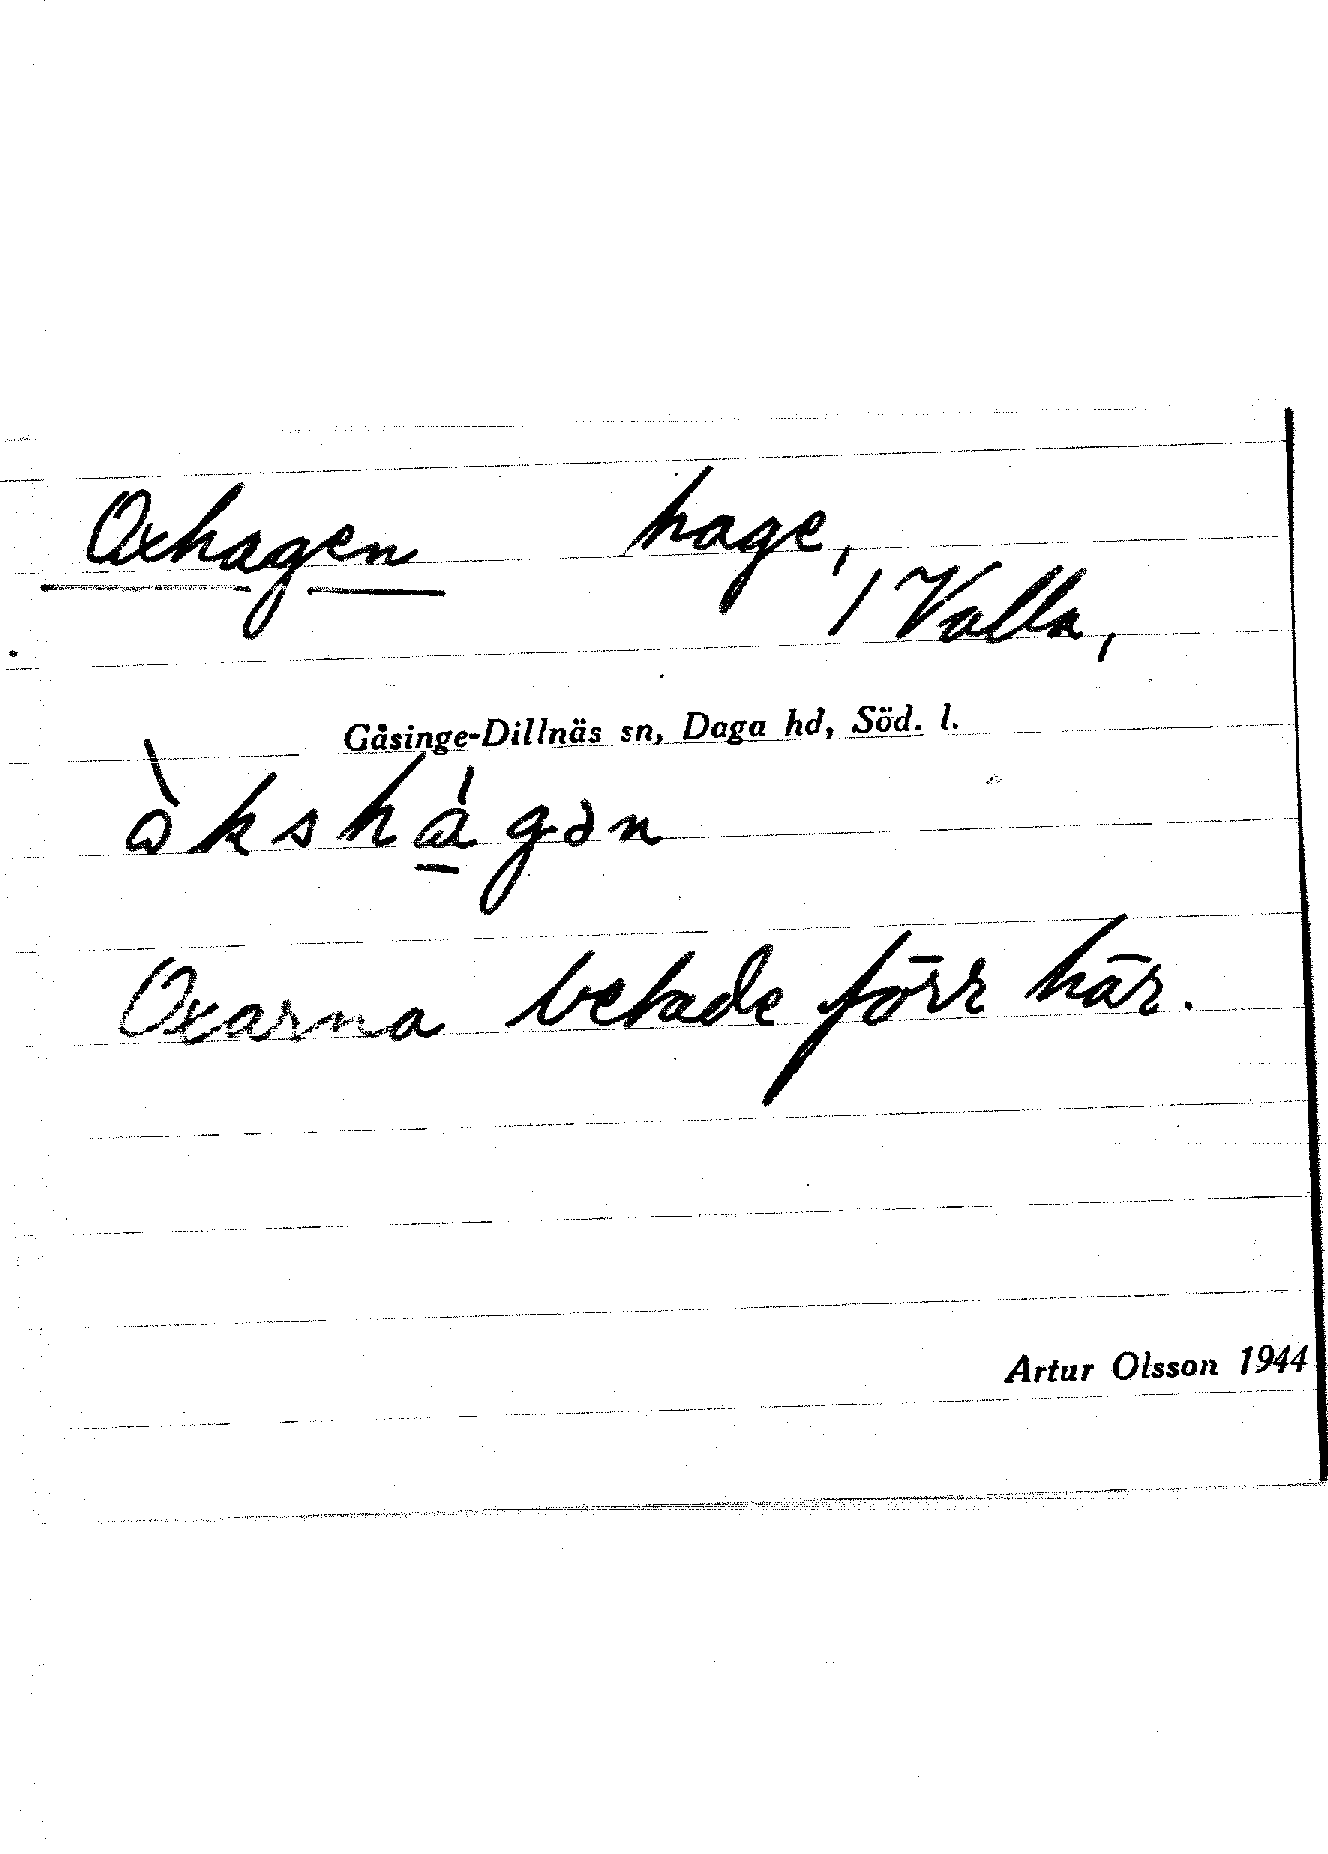 Oxhagen hage,
/ Valla,
Gåsinge-Dillnäs sn, Daga hd, Söd. l.
å̀kshá̱gən
Oxarna betade förr här.
Artur Olsson 1944